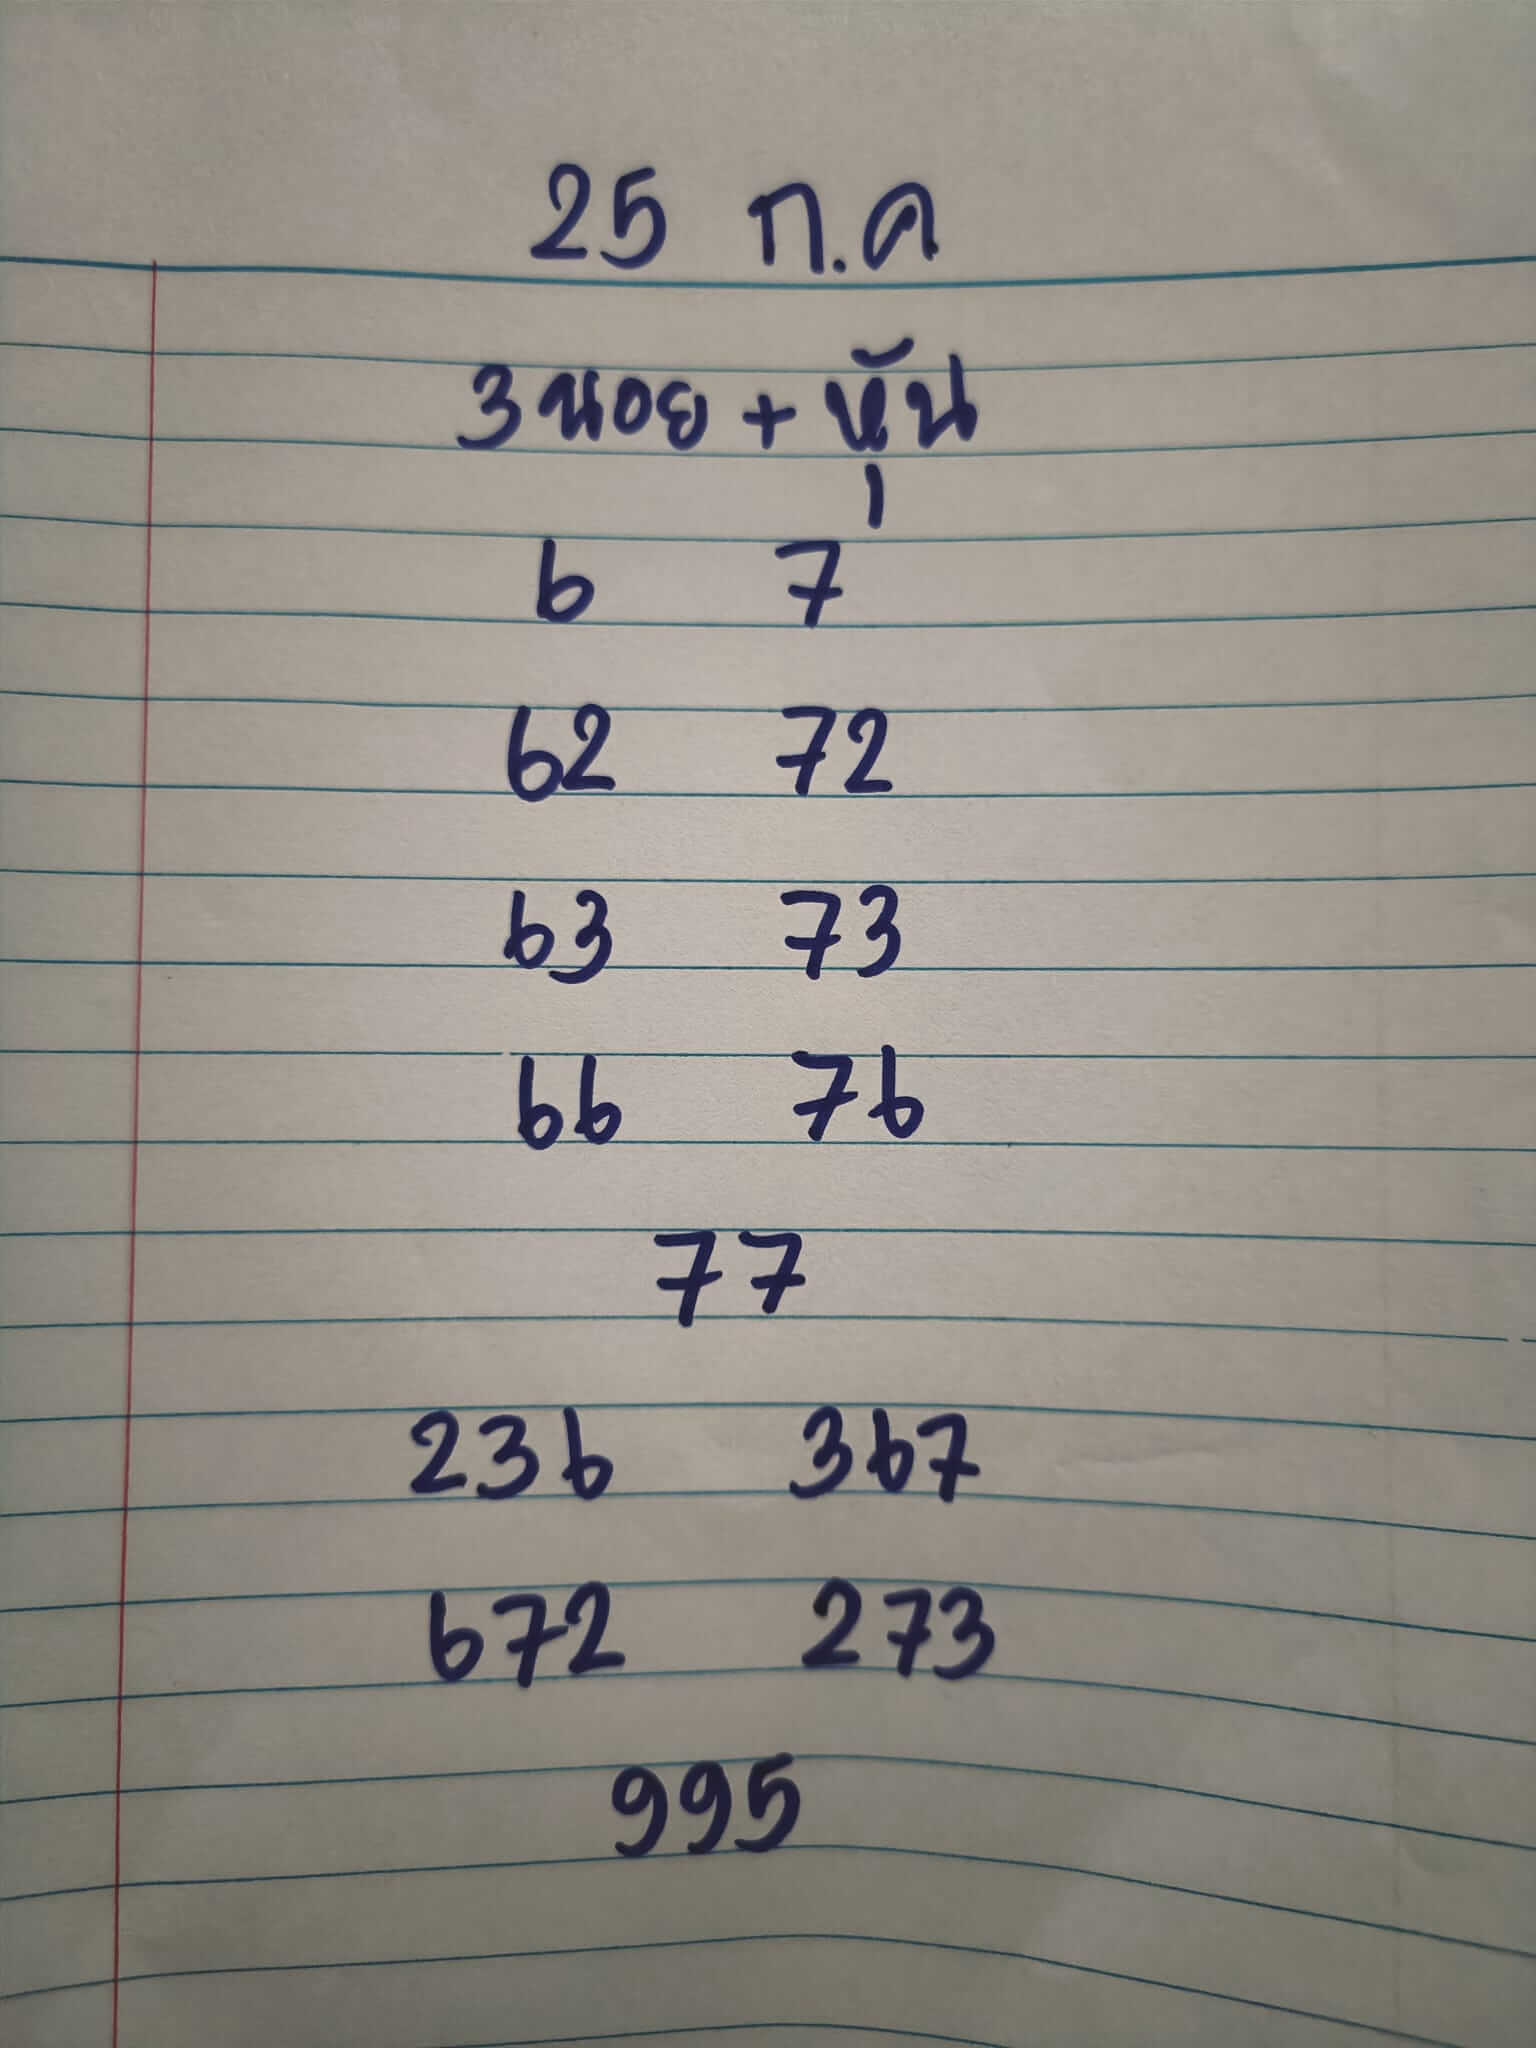 25 ก.ค
3นอย + หุ้น
6 7
62 72
63 73
66 76
77
236 367
672 273
995